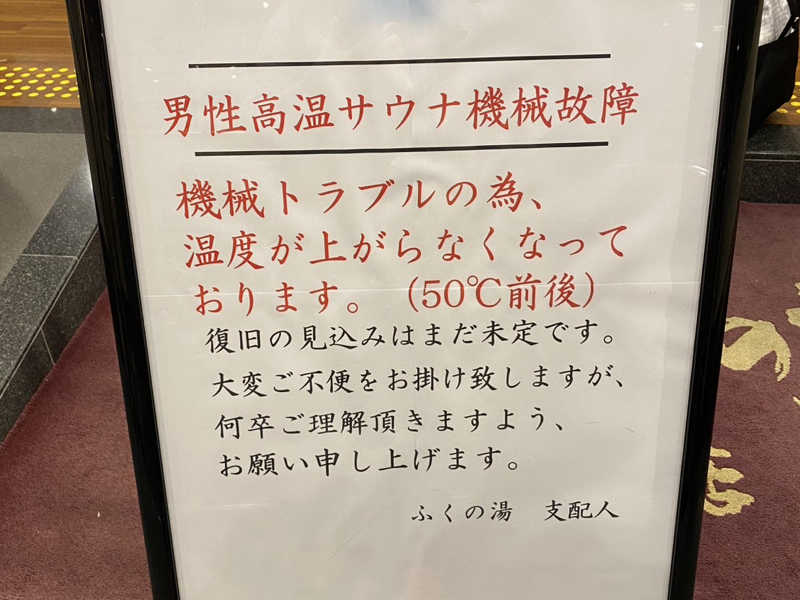 男性高温サウナ機械故障
機械トラブルの為、
温度が上がらなくなって
おります。（50℃前後）
復旧の見込みはまだ未定です。
大変ご不便をお掛け致しますが、
何卒ご理解頂きますよう、
お願い申し上げます。
ふくの湯　支配人
の